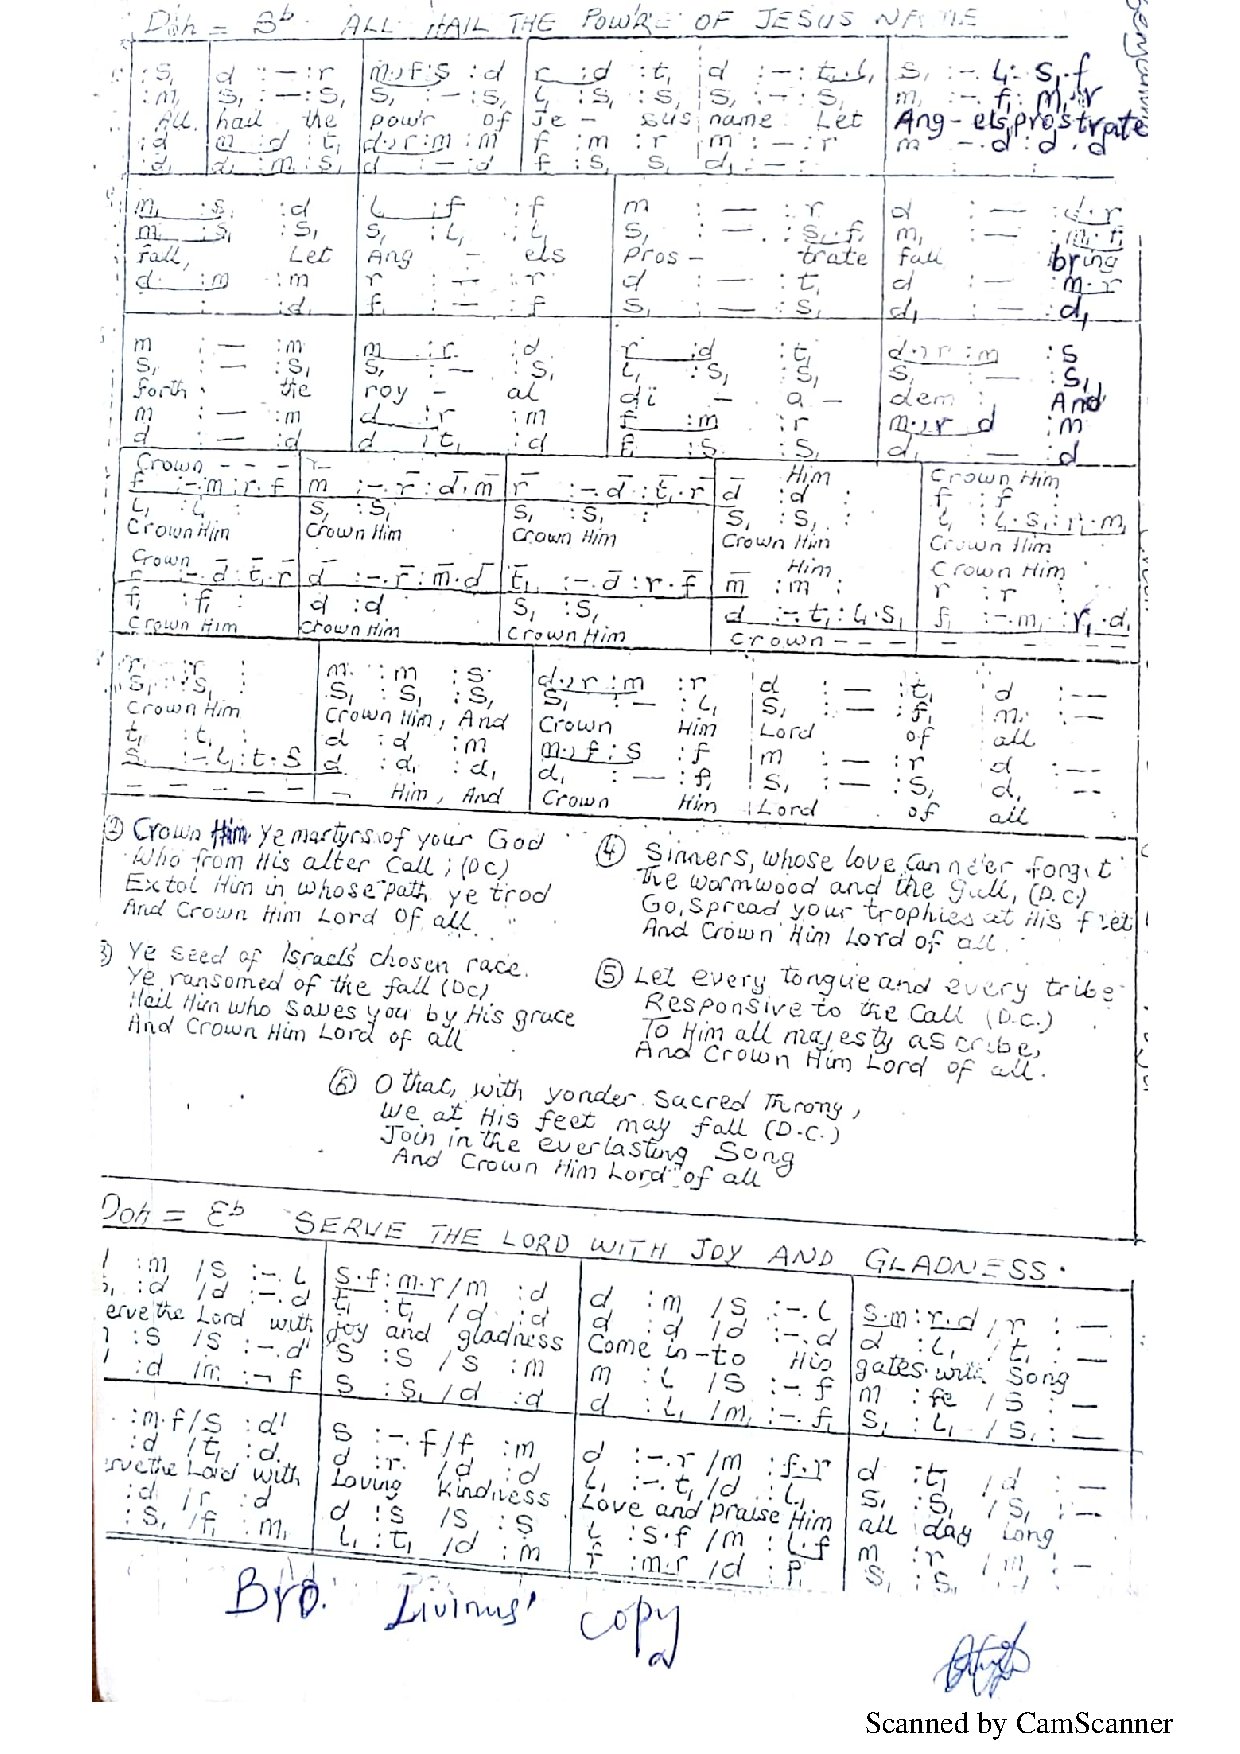 Doh = Bb. ALL HAIL THE POWRE OF JESUS NAME
: s, | d : – : r | m . , f : s : d | r : d : t, | d : – : t, . l, | s, : – . l, : s, . f
: m, | s, : – : s, | s, : – : s, | l, : s, : s, | s, : – : s, | m, : – . f, : m, . r
All hail the powr of Je - sus name Let Ang - els prostrate
: d | m : d : t, | d . , r : m : m | f : m : r | m : – : r | m – . d : d . d
: d, | d, : m : s, | d : – : d | f : s, s, | d, : – :
m, : s, : d | l : f : f | m : – : r | d : – : d . r
m, : s, : s, | s, : l, : l, | s, : – : s, . f, | m, : – : m, . f,
fall, Let Ang - els Pros - trate fall bring
d : m : m | r : – : r | d : – : t, | d : – : m . r
: d, | f, : – : f | s, : – : s, | d, : – : d,
m : – : m | m : r : d | r : d : t, | d . , r : m : s
s, : – : s, | s, : – : s, | l, : s, : s, | s, : – : s,
forth the roy - al di - a - dem And
m : – : m | d : r : m | f : m : r | m . , r d : m
d : – : d | d : t, : d | f : s, : s, | d, : – : d
Crown - - - - Him Crown Him
f : – . m : r . f | m : – . r : d . m | r : – . d : t, . r | d : d : | f : f :
l, : l, : | s, : s, | s, : s, : | s, : s, : | l, : l, . s, : r, . m,
Crown Him Crown Him Crown Him Crown Him Crown Him
Crown Him Crown Him
r : – . d : t, . r | d : – . r : m . d | t, : – . d : r . f | m : m : | r : r
f, : f, : | d : d | s, : s, | d : – . t, : l, . s, | f, : – . m, : r, . d,
Crown Him Crown Him Crown Him Crown - - - - - - - -
r : r : | m : m : s | d . , r : m : r | d : – : t, | d : –
s, : s, | s, : s, : s, | s, : – : l, | s, : – : f, | m, : –
Crown Him Crown Him, And Crown Him Lord of all
t, : t, : | d : d : m | m . , f : s : f | m : – : r | d : –
s, : – . l, : t . s | d : d, : d, | d, : – : f, | s, : – : s, | d, : –
- - - - - - Him, And Crown Him Lord of all
② Crown Him ye martyrs of your God
Who from His alter Call ; (DC)
Extol Him in whose path ye trod
And Crown Him Lord Of all.
3) Ye seed of Israel's chosen race.
Ye ransomed of the fall (DC)
Hail Him who Saves you by His grace
And Crown Him Lord of all
④ Sinners, whose love can ne'er forget
The wormwood and the gall, (D.C)
Go, Spread your trophies at His feet
And Crown Him Lord of all.
⑤ Let every tongue and every tribe
Responsive to the Call (D.C.)
To Him all majesty ascribe,
And Crown Him Lord of all.
⑥ O that, with yonder Sacred Throng,
We at His feet may fall (D.C.)
Join in the everlasting Song
And Crown Him Lord of all
Doh = Eb SERVE THE LORD WITH JOY AND GLADNESS.
: m / s : – . l | s . f : m . r / m : d | d : m / s : – . l | s . m : r . d / r : –
: d / d : – . d | t, : t, / d : d | d : d / d : – . d | d : l, / t, : –
erve the Lord with Joy and gladness Come in-to His gates with Song
: s / s : – . d' | s : s / s : m | m : l / s : – . f | m : fe / s : –
: d / m : – f | s : s, / d : d | d : l, / m, : – . f, | s, : l, / s, : –
: m . f / s : d' | s : – . f / f : m | d : – . r / m : f . r | d : t, / d : –
: d / t, : d | d : r / d : d | l, : – . t, / d : l, | s, : s, / s, : –
erve the Lord with Loving kindness Love and praise Him all day long
: d / r : d | d : s / s : s | l : s . f / m : l . f | m : r / m : –
: s, / f, : m, | l, : t, / d : m | f : m . r / d : f, | s, : s,
Bro. Livinus' copy
Scanned by CamScanner